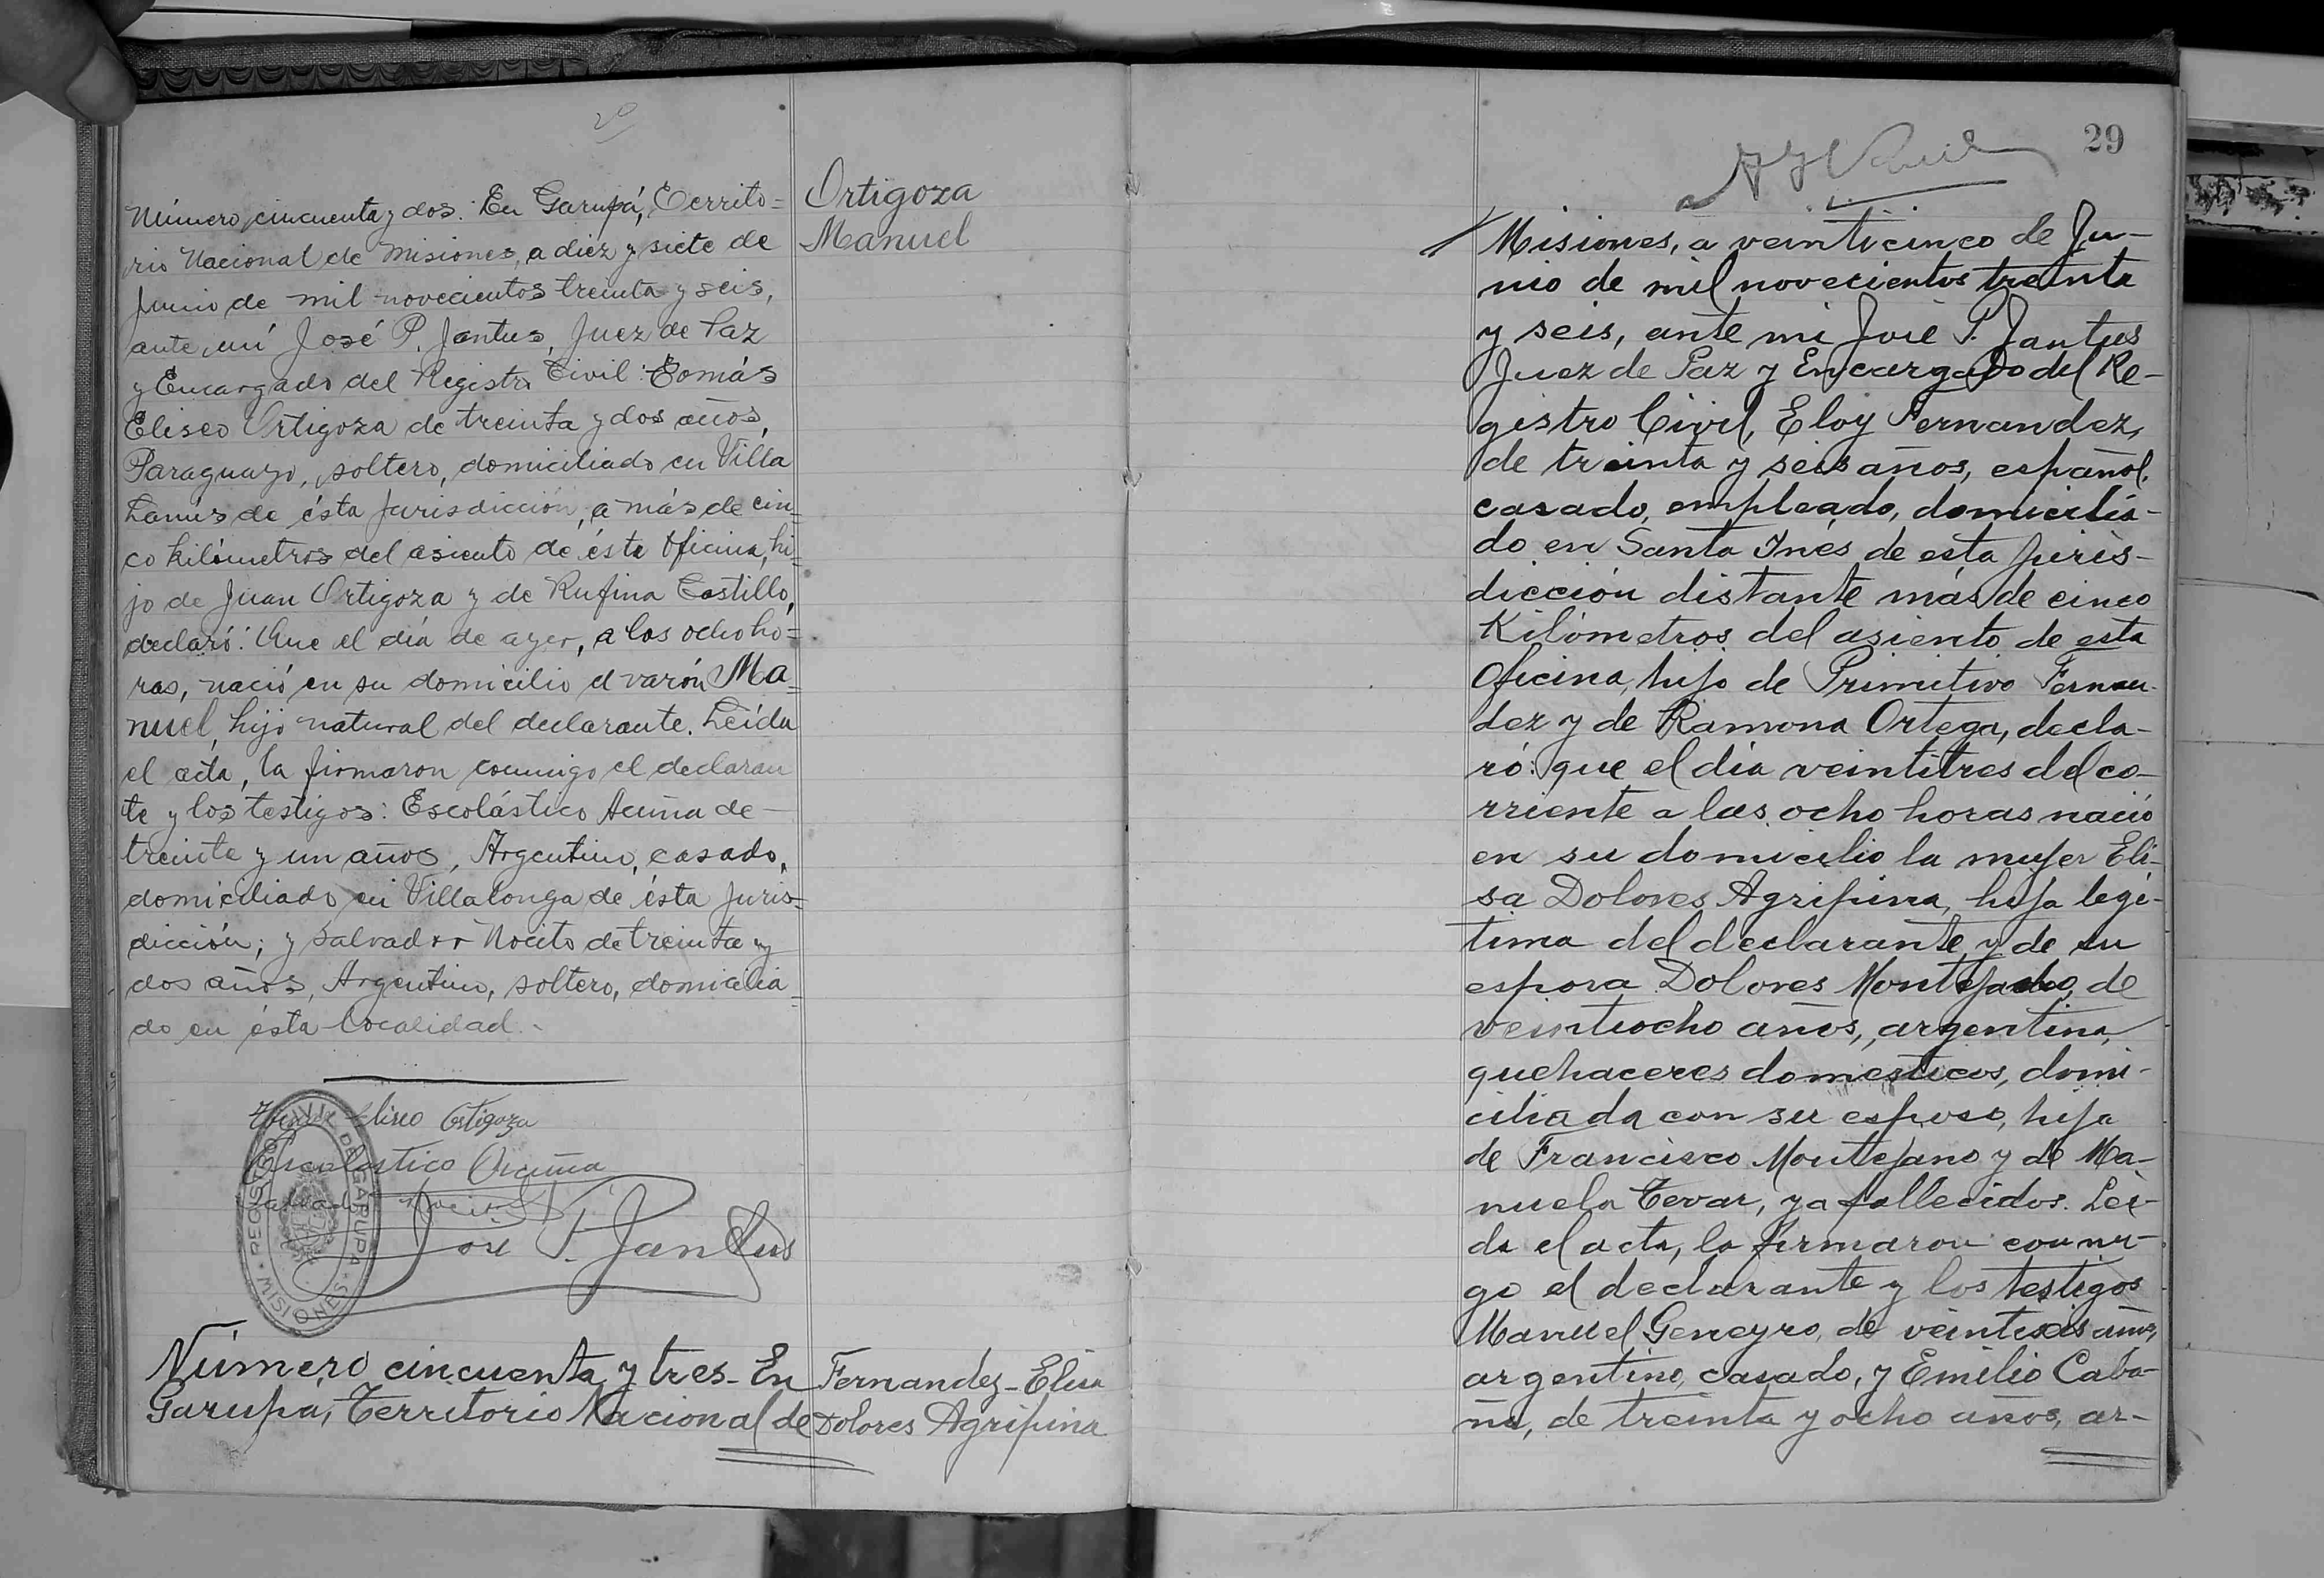 Número cincuenta y dos. En Garupá, Territo=
rio Nacional de Misiones, a diez y siete de
Junio de mil novecientos treinta y seis,
ante mí José P. Jantus, Juez de Paz
y Encargado del Registro Civil: Tomás
Eliseo Ortigoza de treinta y dos años,
Paraguayo, soltero, domiciliado en Villa
Lanús de ésta Jurisdicción, a más de cin=
co kilómetros del asiento de ésta Oficina, hi=
jo de Juan Ortigoza y de Rufina Castillo,
declaró: Que el día de ayer, a las ocho ho=
ras, nació en su domicilio el varón Ma=
nuel, hijo natural del declarante. Leída
el acta, la firmaron conmigo el declaran
te y los testigos: Escolástico Acuña de
treinta y un años, Argentino, casado,
domiciliado en Villalonga de ésta Juris=
dicción; y Salvador Nocito de treinta y
dos años, Argentino, soltero, domicilia=
do en ésta localidad.-
Ortigoza
Manuel
Eliseo Ortigoza
Escolastico Acuña
Salvador Nocito
José P. Jantus
REGISTRO CIVIL DE GARUPA · MISIONES
Número cincuenta y tres- En
Garupá, Territorio Nacional de
Fernandez-Elisa
Dolores Agripina
29
Misiones, a veinticinco de Ju-
nio de mil novecientos treinta
y seis, ante mi José P. Jantus
Juez de Paz y Encargado del Re-
gistro Civil, Eloy Fernandez,
de treinta y seis años, español,
casado, empleado, domicilia-
do en Santa Inés de esta juris-
dicción distante más de cinco
Kilómetros del asiento de esta
Oficina, hijo de Primitivo Fernan-
dez y de Ramona Ortega, decla-
ró: que el día veintitres del co-
rriente a las ocho horas nació
en su domicilio la mujer Eli-
sa Dolores Agripina, hija legi-
tima del declarante y de su
esposa Dolores Montejano, de
veintiocho años, argentina,
quehaceres domesticos, domi-
ciliada con su esposo, hija
de Francisco Montejano y de Ma-
nuela Tevar, ya fallecidos. Lei-
da el acta, la firmaron conmi-
go el declarante y los testigos
Manuel Geneyro, de veintiseis años,
argentino, casado, y Emilio Caba-
ña, de treinta y ocho años, ar-